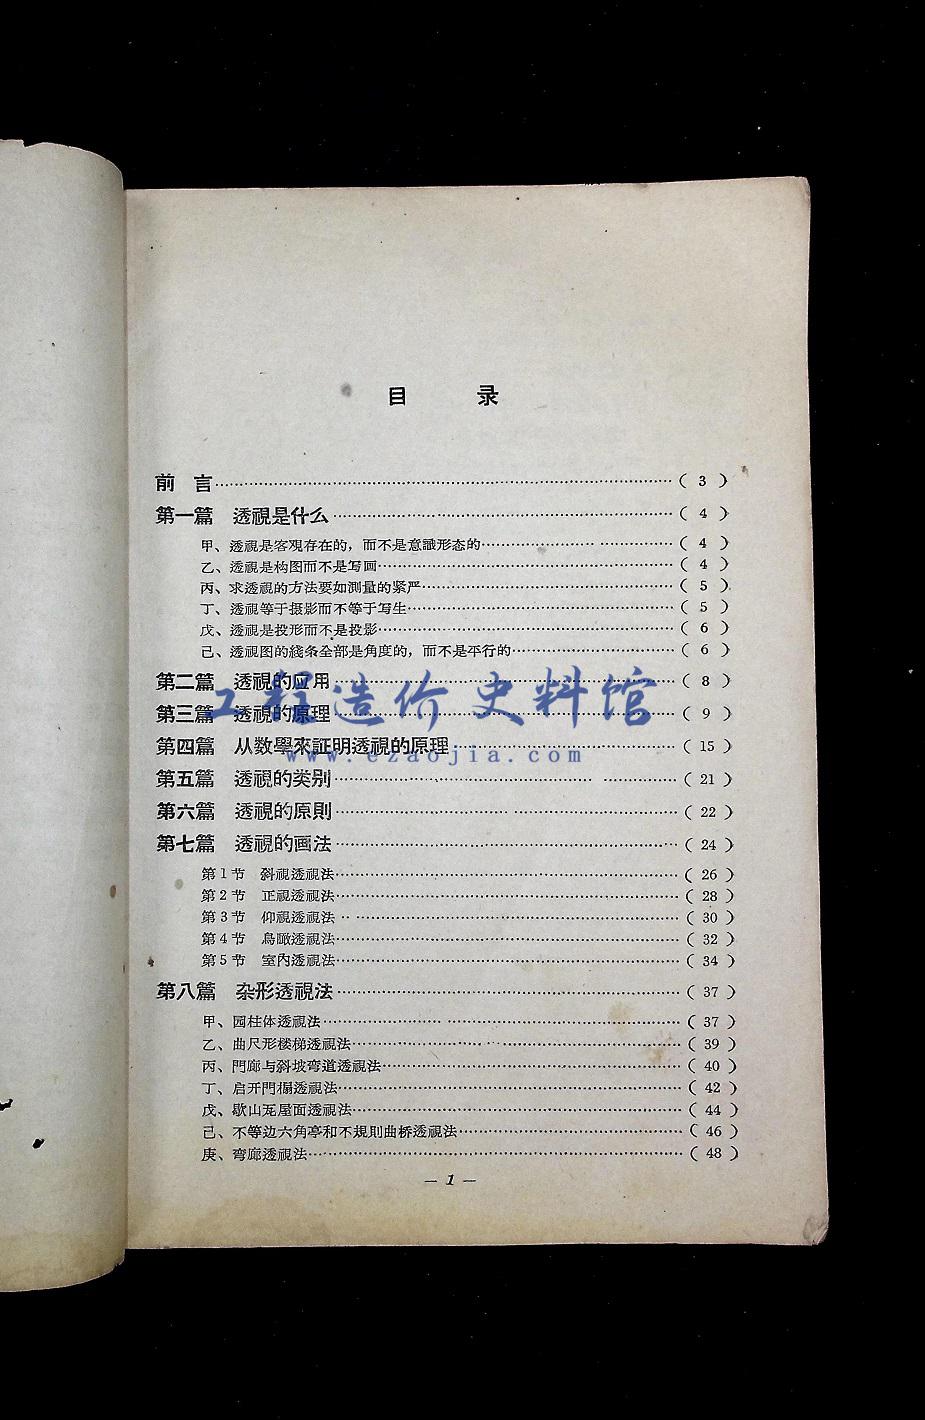 目 录
前 言……(3)
第一篇 透視是什么……(4)
甲、透視是客观存在的，而不是意識形态的……(4)
乙、透視是构图而不是写画……(4)
丙、求透視的方法要如測量的紧严……(5)
丁、透視等于摄影而不等于写生……(5)
戊、透視是投形而不是投影……(6)
己、透視图的綫条全部是角度的，而不是平行的……(6)
第二篇 透視的应用……(8)
第三篇 透視的原理……(9)
工程造价史料馆
第四篇 从数學來証明透視的原理……(15)
www.ezaojia.com
第五篇 透視的类别……(21)
第六篇 透視的原則……(22)
第七篇 透視的画法……(24)
第1节 斜視透視法……(26)
第2节 正視透視法……(28)
第3节 仰視透視法……(30)
第4节 鳥瞰透視法……(32)
第5节 室內透視法……(34)
第八篇 杂形透視法……(37)
甲、园柱体透視法……(37)
乙、曲尺形楼梯透視法……(39)
丙、門廊与斜坡弯道透視法……(40)
丁、启开門搧透視法……(42)
戊、歇山瓦屋面透視法……(44)
己、不等边六角亭和不規則曲桥透視法……(46)
庚、弯廊透視法……(48)
— 1 —